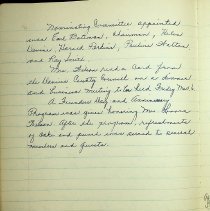 Nominating Committee appointed
was Earl Bateman, Chairman, Helen
Harold Perkins, Pauline
and Ray
Mrs. Nelson read a card from
the Council on a dinner
and business meeting to be held Friday Nov. 6.
A Founders Day and Anniversary
Program was given honoring Mrs.
Nelson. After the program, refreshments
of cake and punch was served to several
members and guests.